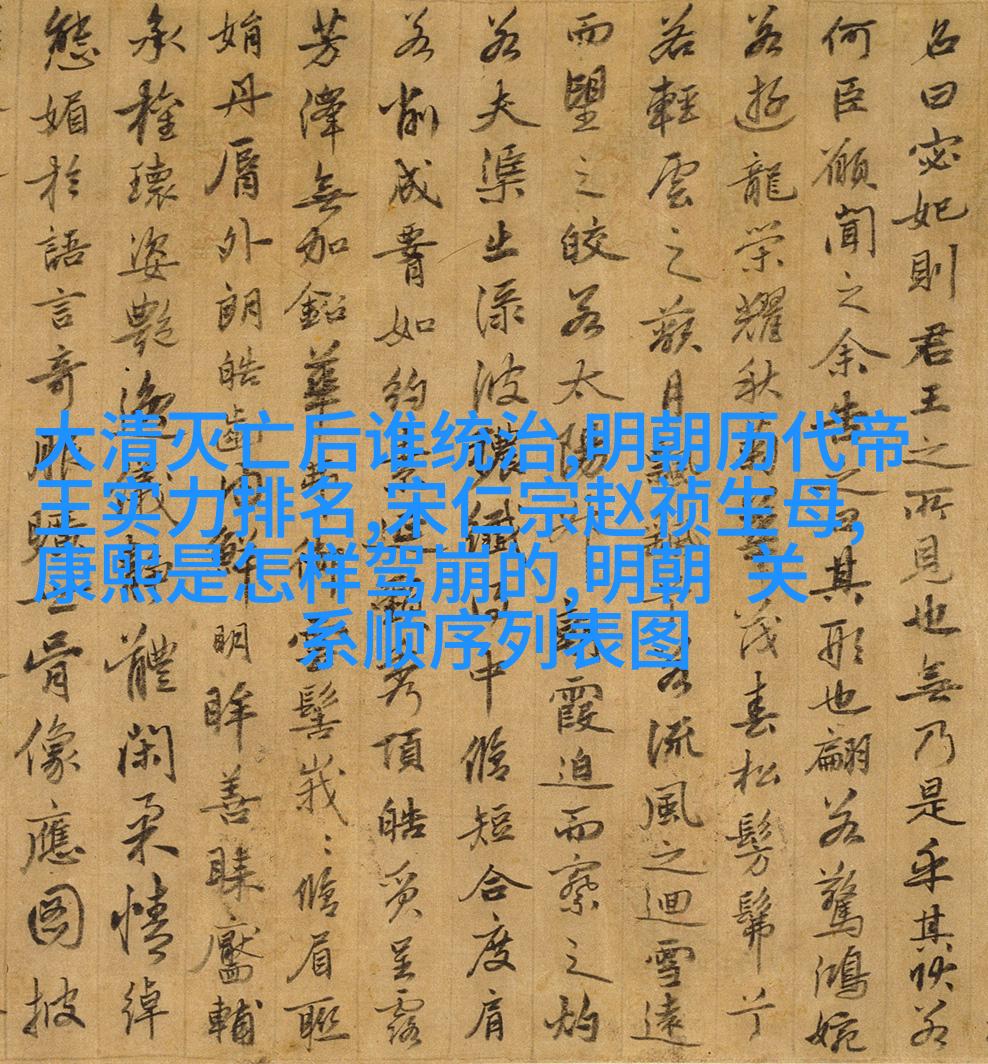 大清灭亡后谁统治,明朝历代帝
王实力排名,宋仁宗赵祯生母,
康熙是怎样驾崩的,明朝 关
系顺序列表图
名曰宓妃則君王之所見也無乃是乎其狀若
何臣願聞之余告之曰其形也翩若驚鴻婉
若遊龍榮耀秋菊華茂春松髣髴兮
若輕雲之蔽月飄飄兮若流風之迴雪遠
而望之皎若太陽升朝霞迫而察之灼
若夫渠出淥波穠纖得中脩短合度肩
若削成腰如約素延頸秀項皓質呈露
芳澤無加鉛華弗御雲髻峩〻脩眉聯
娟丹脣外朗皓齒內鮮明眸善睞靨輔
承權瓌姿艷逸儀靜體閑柔情綽
態媚於語言奇服曠世骨像應圖披